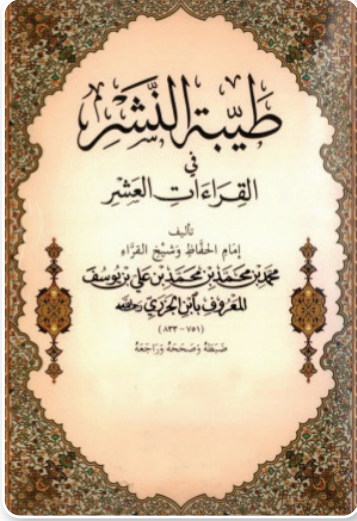 طَيِّبَةُ النَّشْرِ
فِي
القِرَاءَاتِ العَشْرِ
تأليف
إمَامِ الحُفَّاظِ وَشَيْخِ القُرَّاءِ
محمد بن محمد بن محمد بن علي بن يوسف
المعروف بابن الجزري رحمه الله
(٧٥١ - ٨٣٣)
ضَبَطَهُ وَصَحَّحَهُ وَرَاجَعَهُ